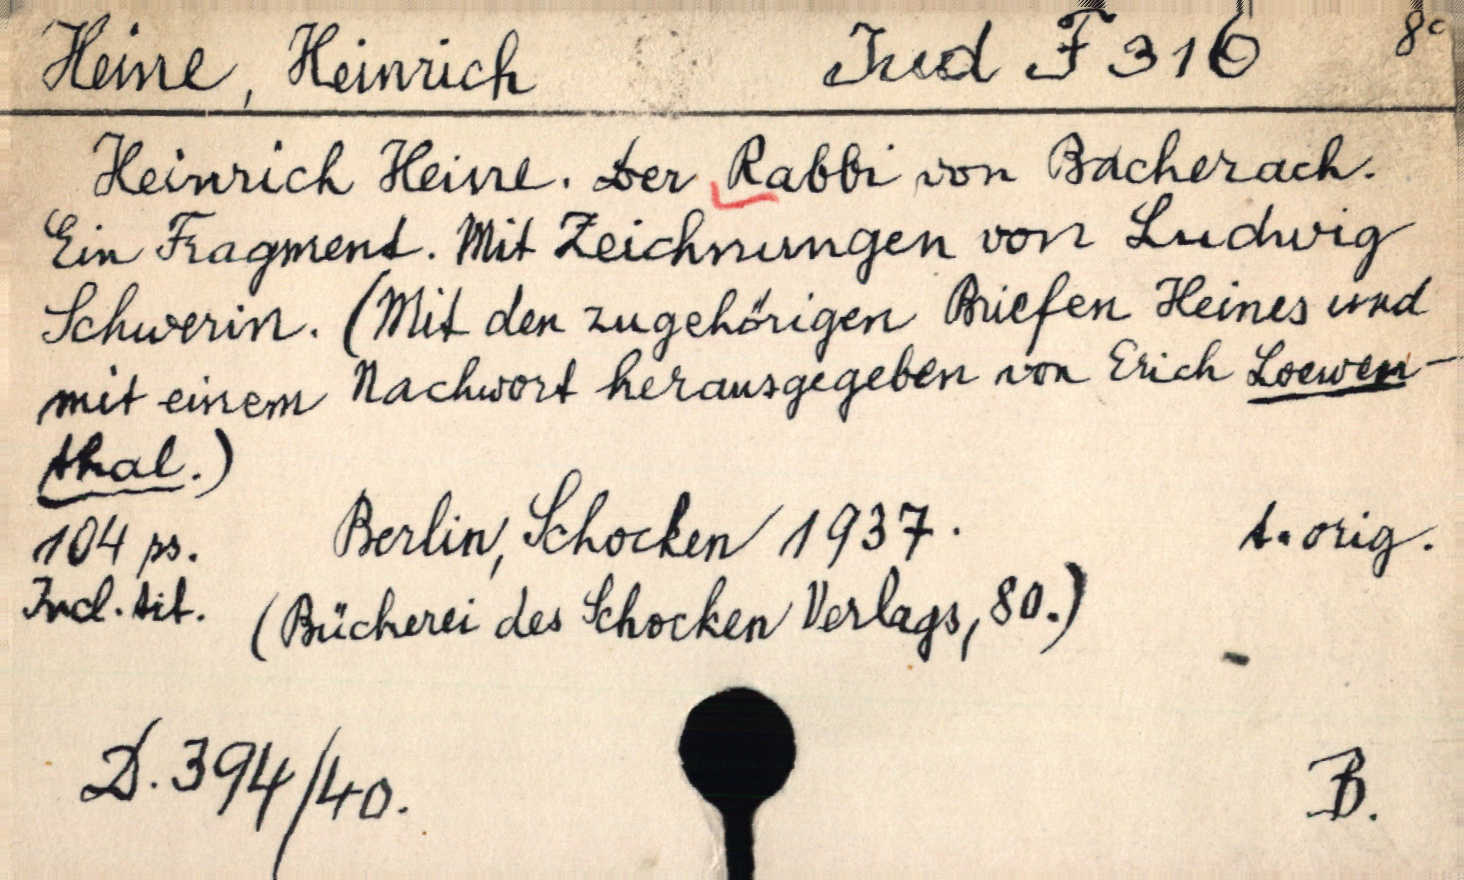 Heine, Heinrich Jud F 316 8°
Heinrich Heine. Der Rabbi von Bacherach.
Ein Fragment. Mit Zeichnungen von Ludwig
Schwerin. (Mit den zugehörigen Briefen Heines und
mit einem Nachwort herausgegeben von Erich Loewen-
thal.)
104 ps. Berlin, Schocken 1937. t. orig.
Incl. tit. (Bücherei des Schocken Verlags, 80.)
D. 394/40. B.